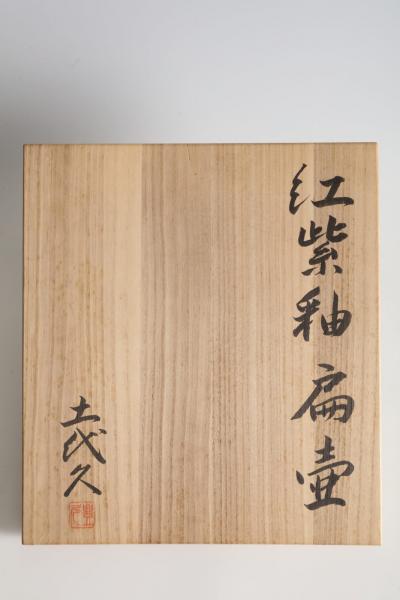 紅紫釉 扁壺
土代久